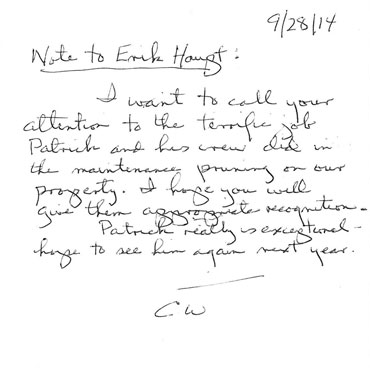 9/28/14
Note to Erik Haupt:
I want to call your
attention to the terrific job
Patrick and his crew did in
the maintenance pruning on our
property. I hope you will
give them appropriate recognition.
Patrick really is exceptional -
hope to see him again next year.
CW